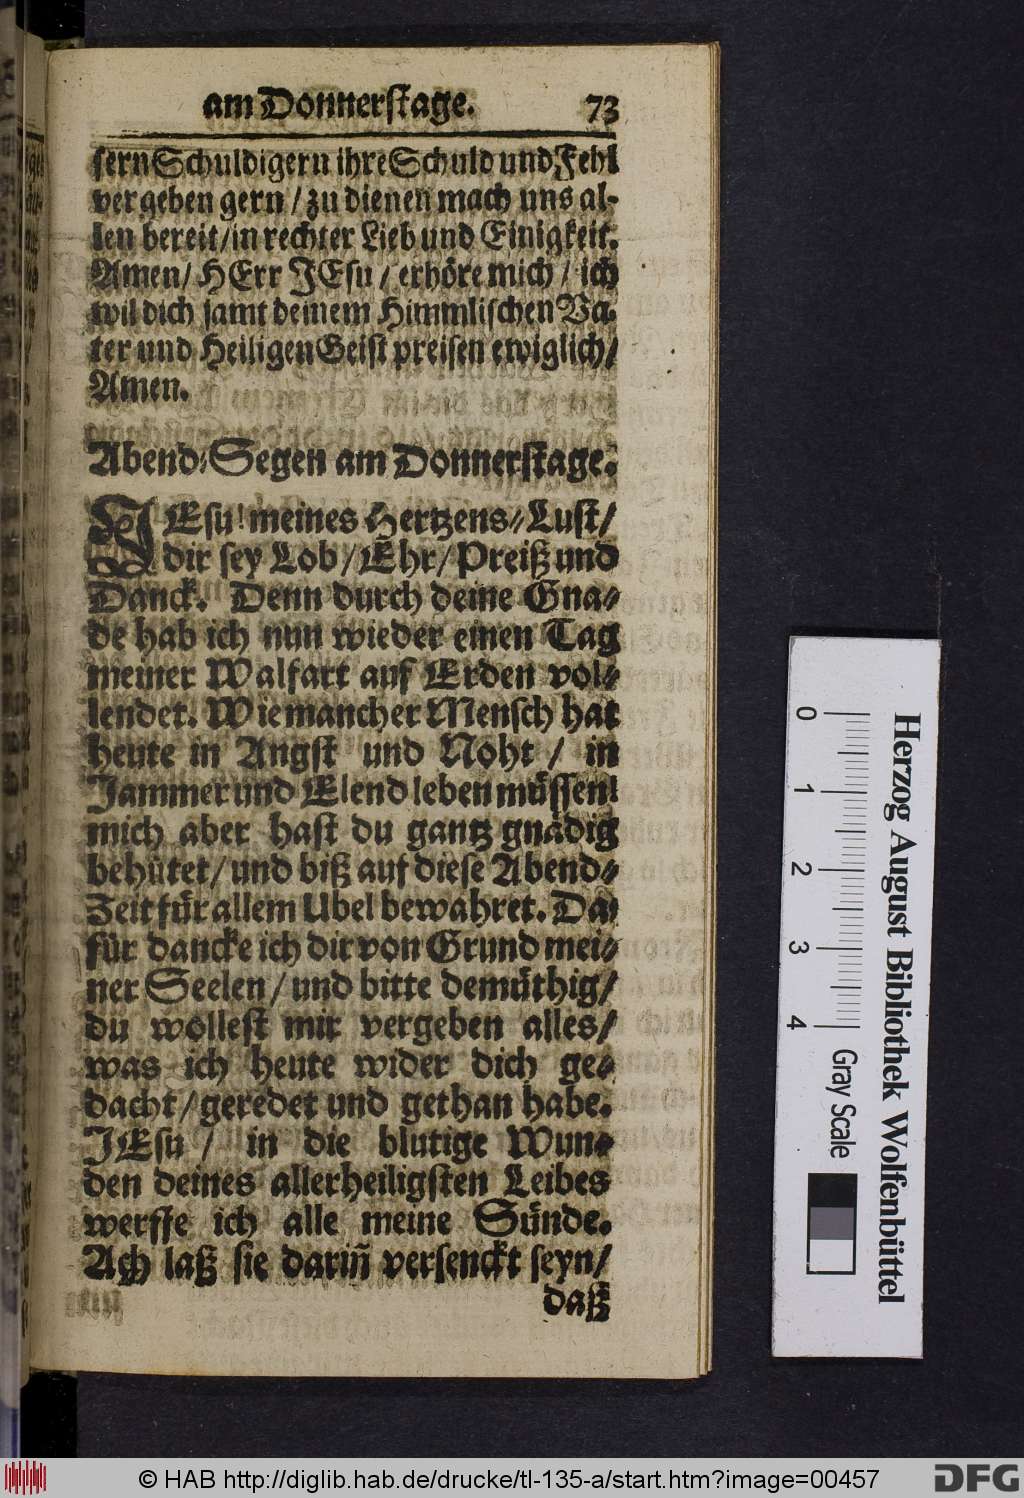 am Donnerstage. 73
sern Schuldigern ihre Schuld und Fehl
vergeben gern / zu dienen mach uns al-
len bereit / in rechter Lieb und Einigkeit.
Amen / HErr JEsu / erhöre mich / ich
wil dich samt deinem Himmlischen Va-
ter und Heiligen Geist preisen ewiglich /
Amen.
Abend-Segen am Donnerstage.
JEsu! meines Hertzens-Lust /
dir sey Lob / Ehr / Preiß und
Danck. Denn durch deine Gna-
de hab ich nun wieder einen Tag
meiner Walfart auf Erden vol-
lendet. Wie mancher Mensch hat
heute in Angst und Noht / in
Jammer und Elend leben müssen!
mich aber hast du gantz gnädig
behütet / und biß auf diese Abend-
Zeit für allem Ubel bewahret. Da-
für dancke ich dir von Grund mei-
ner Seelen / und bitte demüthig /
du wollest mir vergeben alles /
was ich heute wider dich ge-
dacht / geredet und gethan habe.
JEsu / in die blutige Wun-
den deines allerheiligsten Leibes
werffe ich alle meine Sünde.
Ach laß sie dariñ versenckt seyn /
daß
0 1 2 3 4
Gray Scale
Herzog August Bibliothek Wolfenbüttel
© HAB http://diglib.hab.de/drucke/tl-135-a/start.htm?image=00457
DFG